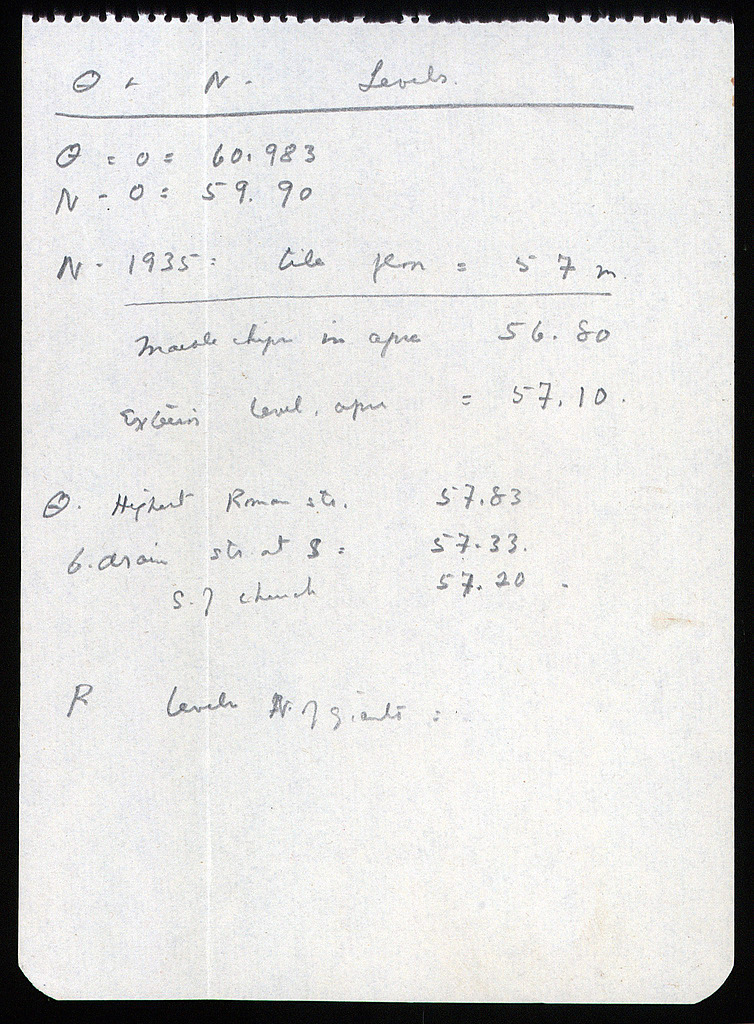 Θ + N - Levels.
Θ = 0 = 60.983
N - 0 = 59.90
N - 1935 = tile floor = 57 m.
Marble chips in apse 56.80
Exterior level, apse = 57.10.
Θ. Highest Roman str. 57.83
6. drain str. at S = 57.33.
S. of church 57.20.
R Levels N. of giants =